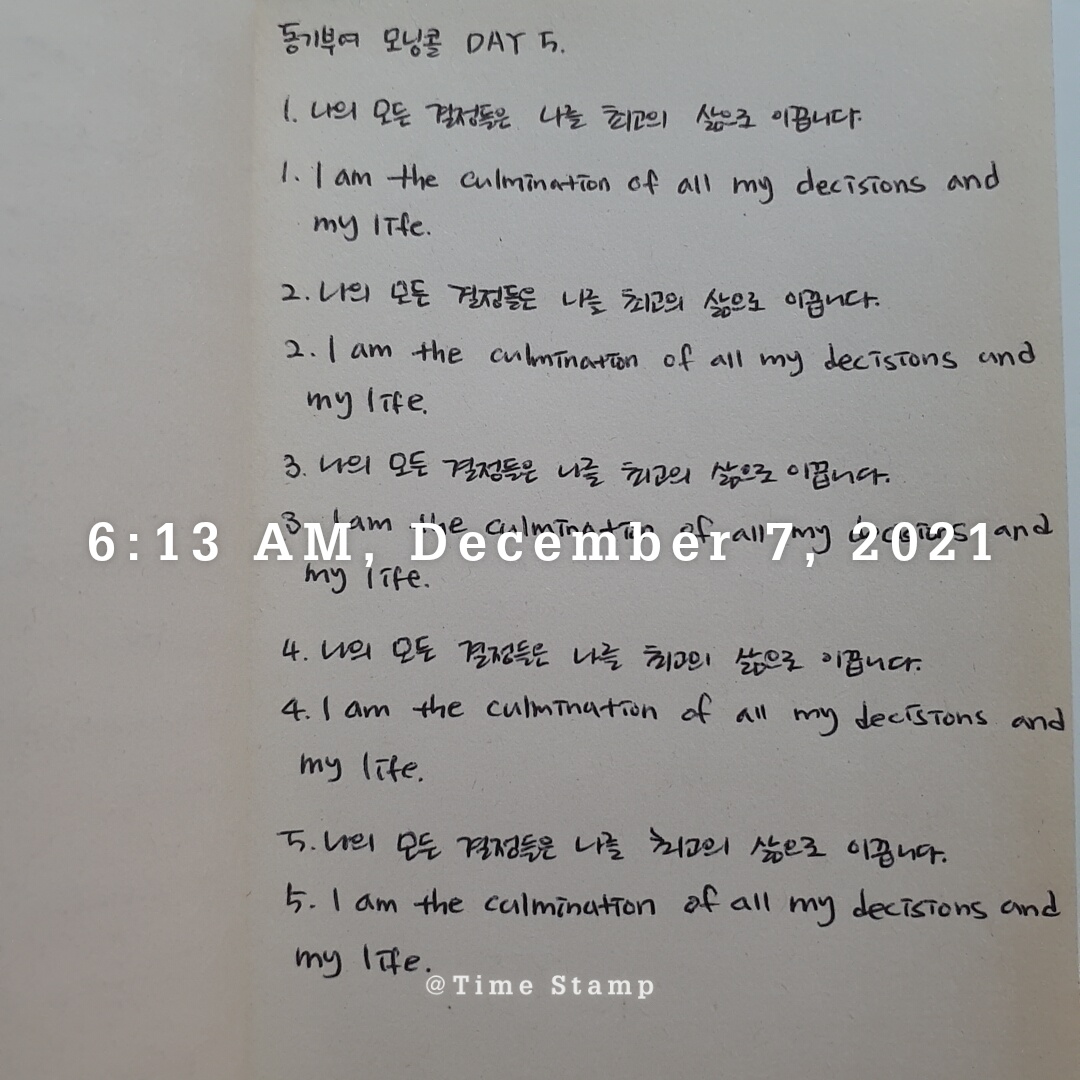 동기부여 모닝콜 DAY 5.
1. 나의 모든 결정들은 나를 최고의 삶으로 이끕니다.
1. I am the culmination of all my decisions and
my life.
2. 나의 모든 결정들은 나를 최고의 삶으로 이끕니다.
2. I am the culmination of all my decisions and
my life.
3. 나의 모든 결정들은 나를 최고의 삶으로 이끕니다.
3. I am the culmination of all my decisions and
6:13 AM, December 7, 2021
my life.
4. 나의 모든 결정들은 나를 최고의 삶으로 이끕니다.
4. I am the culmination of all my decisions and
my life.
5. 나의 모든 결정들은 나를 최고의 삶으로 이끕니다.
5. I am the culmination of all my decisions and
my life.
@Time Stamp